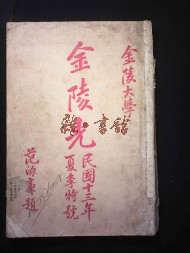 金陵大學
金陵光
民國十三年
夏季特號
范源廉題